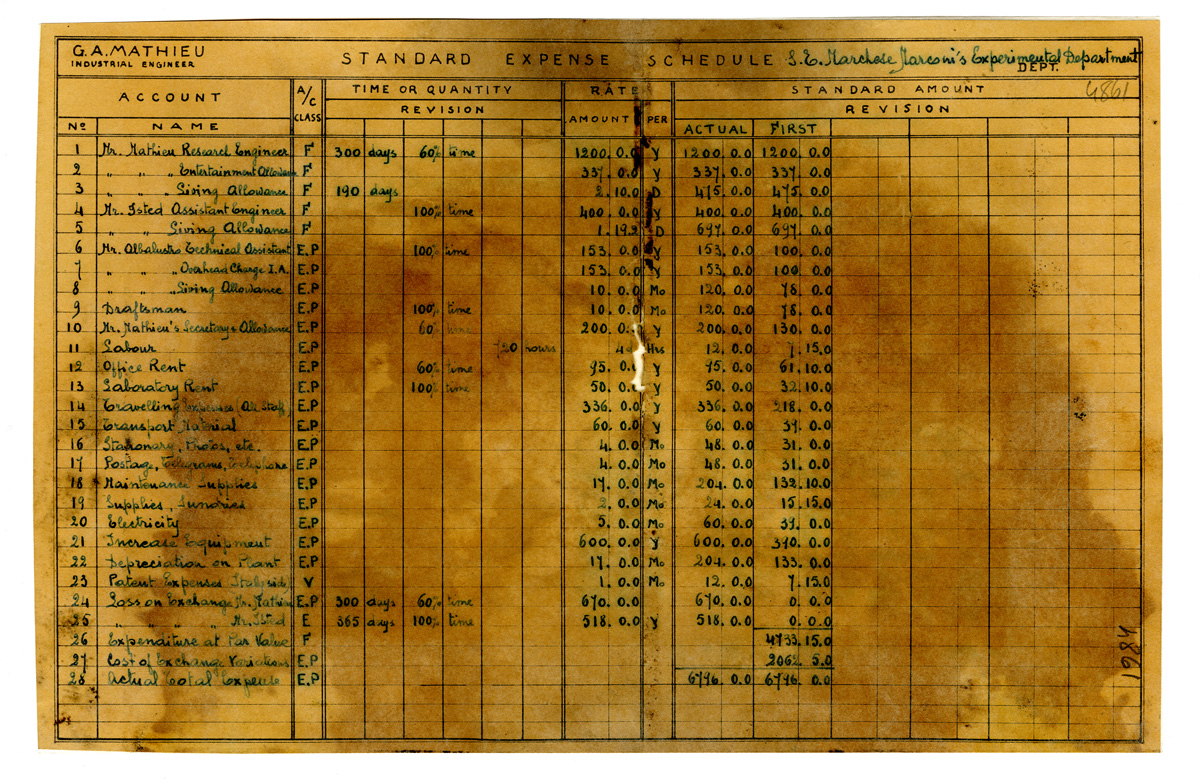 G.A. MATHIEU
INDUSTRIAL ENGINEER
STANDARD EXPENSE SCHEDULE S.E. Marchese Marconi's Experimental Department
DEPT.
4861
ACCOUNT A/C CLASS TIME OR QUANTITY RATE STANDARD AMOUNT
REVISION AMOUNT PER REVISION
Nº NAME ACTUAL FIRST
1 Mr. Mathieu Research Engineer F 300 days 60% time 1200.0.0 Y 1200.0.0 1200.0.0
2 " " " Entertainment Allowance F 337.0.0 Y 337.0.0 337.0.0
3 " " " Living Allowance F 190 days 2.10.0 D 475.0.0 475.0.0
4 Mr. Isted Assistant Engineer F 100% time 400.0.0 Y 400.0.0 400.0.0
5 " " Living Allowance F 1.19.2 D 697.0.0 697.0.0
6 Mr. Albalustro Technical Assistant E.P 100% time 153.0.0 Y 153.0.0 100.0.0
7 " " " Overhead Charge I.A. E.P 153.0.0 Y 153.0.0 100.0.0
8 " " " Living Allowance E.P 10.0.0 Mo 120.0.0 78.0.0
9 Draftsman E.P 100% time 10.0.0 Mo 120.0.0 78.0.0
10 Mr. Mathieu's Secretarys Allowance E.P 60% time 200.0. Y 200.0.0 130.0.0
11 Labour E.P hours Hrs 12.0.0 7.15.0
12 Office Rent E.P 60% time 95.0.0 Y 95.0.0 61.10.0
13 Laboratory Rent E.P 100% time 50.0.0 Y 50.0.0 32.10.0
14 Travelling Expenses, All Staff, E.P 336.0.0 Y 336.0.0 218.0.0
15 Transport Material E.P 60.0.0 Y 60.0.0 39.0.0
16 Stationary, Photos, etc. E.P 4.0.0 Mo 48.0.0 31.0.0
17 Postage, Telegrams, Telephone E.P 4.0.0 Mo 48.0.0 31.0.0
18 Maintenance Supplies E.P 17.0.0 Mo 204.0.0 132.10.0
19 Supplies, Sundries E.P 2.0.0 Mo 24.0.0 15.15.0
20 Electricity E.P 5.0.0 Mo 60.0.0 39.0.0
21 Increase Equipment E.P 600.0.0 Y 600.0.0 390.0.0
22 Depreciation on Plant E.P 17.0.0 Mo 204.0.0 133.0.0
23 Patent Expenses V 1.0.0 Mo 12.0.0 7.15.0
24 Loss on Exchange Mr. Mathieu E.P 300 days 60% time 670.0.0 670.0.0 0.0.0
25 " " " " Mr. Isted E 365 days 100% time 518.0.0 Y 518.0.0 0.0.0
26 Expenditure at Par Value F 4733.15.0
27 Cost of Exchange Variations E.P 2062.5.0
28 Actual Total Expense E.P 6796.0.0 6796.0.0
1684